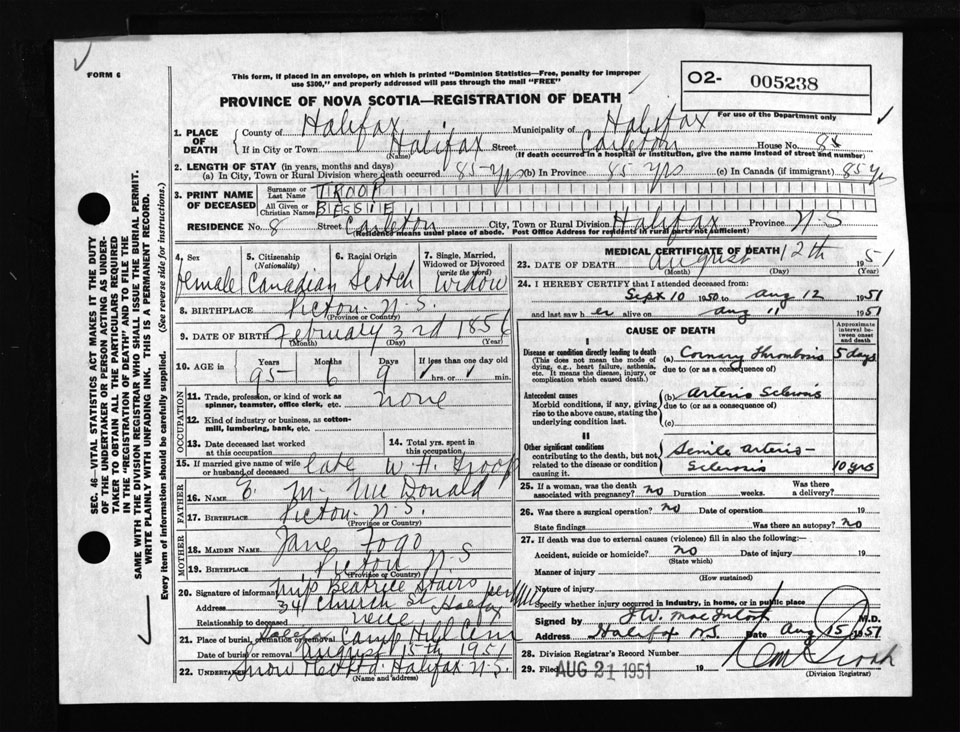 FORM 6
This form, if placed in an envelope, on which is printed "Dominion Statistics—Free, penalty for improper
use $300," and properly addressed will pass through the mail "FREE"
PROVINCE OF NOVA SCOTIA—REGISTRATION OF DEATH
O2- 005238
For use of the Department only
1. PLACE OF DEATH
County of Halifax Municipality of Halifax
If in City or Town Halifax Street Carleton House No. 8
(Name) (If death occurred in a hospital or institution, give the name instead of street and number)
2. LENGTH OF STAY (in years, months and days)
(a) In City, Town or Rural Division where death occurred 85-yrs (b) In Province 85 yrs (c) In Canada (if immigrant) 85 yrs
3. PRINT NAME OF DECEASED
Surname or Last Name TROOP
All Given or Christian Names BESSIE
RESIDENCE No. 8 Street Carleton City, Town or Rural Division Halifax Province N-S
(Residence means usual place of abode. Post Office Address for residents in rural parts not sufficient)
4. Sex Female
5. Citizenship (Nationality) Canadian
6. Racial Origin Scotch
7. Single, Married, Widowed or Divorced (write the word) Widow
8. BIRTHPLACE Pictou N.S.
(Province or Country)
9. DATE OF BIRTH February 3rd 1856
(Month) (Day) (Year)
10. AGE IN Years Months Days If less than one day old
95 6 9 hrs. or min.
OCCUPATION
11. Trade, profession, or kind of work as spinner, teamster, office clerk, etc. none
12. Kind of industry or business, as cotton-mill, lumbering, bank, etc.
13. Date deceased last worked at this occupation
14. Total yrs. spent in this occupation
15. If married give name of wife or husband of deceased late W. H. Troop
FATHER
16. NAME E. M. McDonald
17. BIRTHPLACE Pictou N.S.
(Province or Country)
MOTHER
18. MAIDEN NAME Jane Fogo
19. BIRTHPLACE Pictou N-S
(Province or Country)
20. Signature of informant Miss Beatrice Stairs per
Address 34 Church St Halifax
Relationship to deceased niece
21. Place of burial, cremation or removal Camp Hill Cem
Date of burial or removal August 15th 1951
22. Undertaker Snow Co Ltd. Halifax N.S.
(Name and address)
MEDICAL CERTIFICATE OF DEATH
23. DATE OF DEATH August 12th 1951
(Month) (Day) (Year)
24. I HEREBY CERTIFY that I attended deceased from:
Sept 10 1950 to Aug 12 1951
and last saw her alive on Aug 11 1951
CAUSE OF DEATH
Approximate interval between onset and death
I
Disease or condition directly leading to death (a) Coronary Thrombosis 5 days
(This does not mean the mode of dying, e.g., heart failure, asthenia, etc. It means the disease, injury, or complication which caused death.)
due to (or as a consequence of)
Antecedent causes (b) Arterio Sclerosis
Morbid conditions, if any, giving rise to the above cause, stating the underlying condition last.
due to (or as a consequence of)
(c)
II
Other significant conditions Senile arterio-Sclerosis 10 yrs
contributing to the death, but not related to the disease or condition causing it.
25. If a woman, was the death associated with pregnancy? no Duration weeks. Was there a delivery?
26. Was there a surgical operation? no Date of operation 19
State findings Was there an autopsy? no
27. If death was due to external causes (violence) fill in also the following:—
Accident, suicide or homicide? no Date of injury 19
(State which)
Manner of injury
(How sustained)
Nature of injury
Specify whether injury occurred in industry, in home, or in public place
Signed by J W. MacIntosh M.D.
Address Halifax N.S. Date Aug 15/1951
28. Division Registrar's Record Number
29. Filed AUG 21 1951 19
(Division Registrar)
SEC. 46—VITAL STATISTICS ACT MAKES IT THE DUTY
OF THE UNDERTAKER OR PERSON ACTING AS UNDER-
TAKER TO OBTAIN ALL THE PARTICULARS REQUIRED
IN THE "REGISTRATION OF DEATH" AND TO FILE THE
SAME WITH THE DIVISION REGISTRAR WHO SHALL ISSUE THE BURIAL PERMIT.
WRITE PLAINLY WITH UNFADING INK. THIS IS A PERMANENT RECORD.
Every item of information should be carefully supplied. (See reverse side for instructions.)